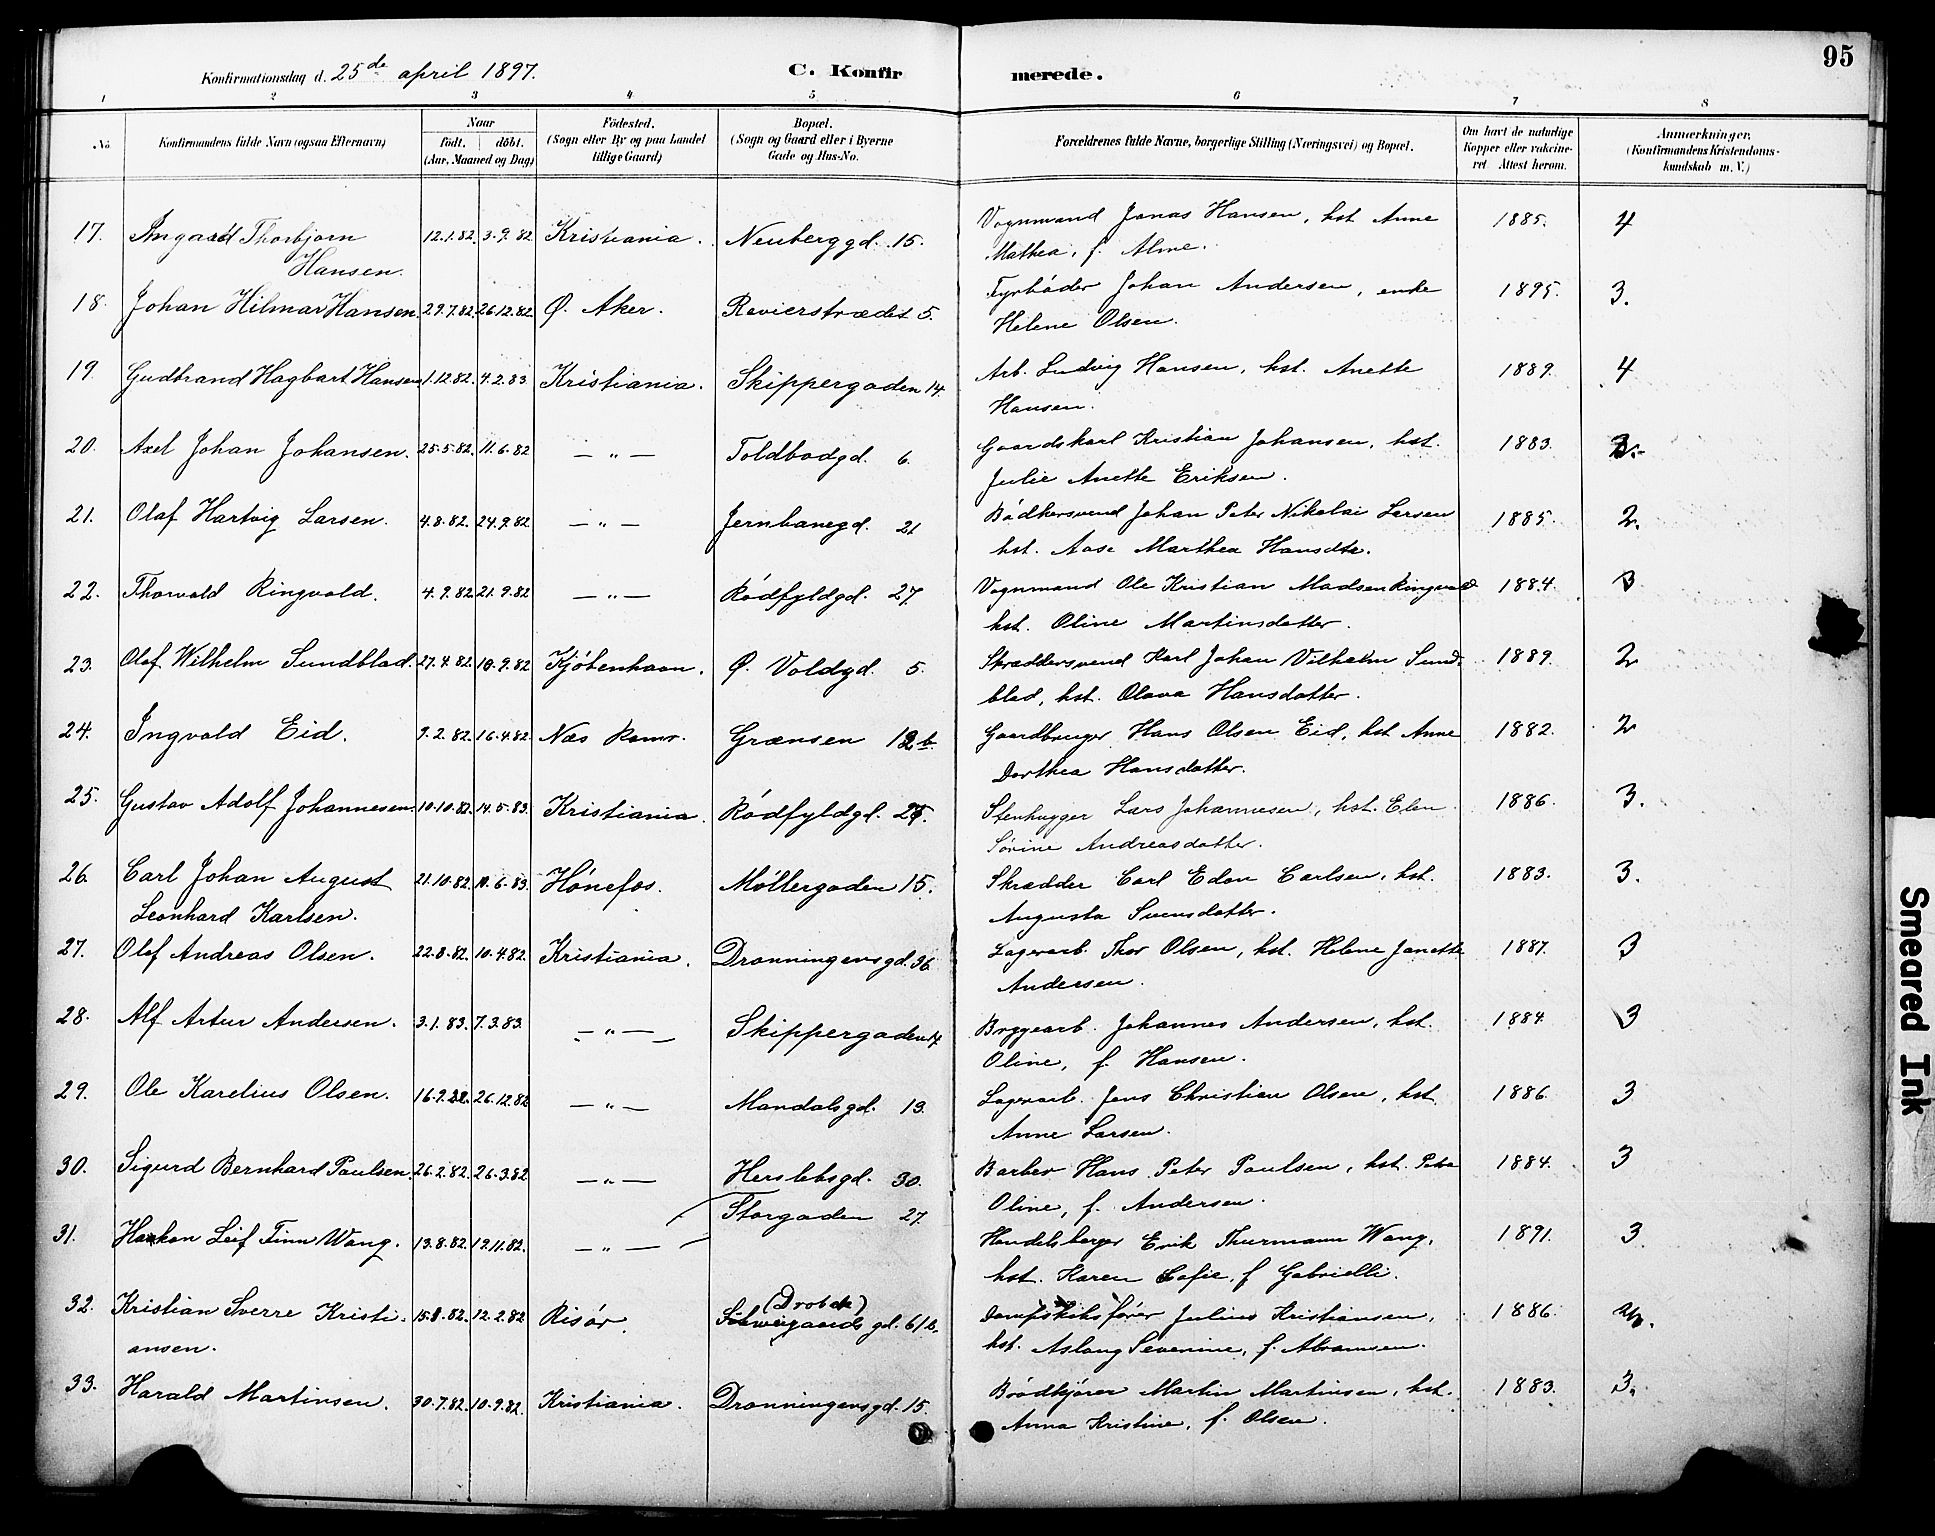 95
Konfirmationsdag d. 25de april 1897. C. Konfir merede.
1 2 3 4 5 6 7 8
No. Konfirmandens fulde Navn (ogsaa Efternavn) Naar födt. döbt. (Aar, Maaned og Dag) Födested. (Sogn eller By og paa Landet tillige Gaard) Bopæl. (Sogn og Gaard eller i Byerne Gade og Hus-No. Forældrenes fulde Navne, borgerlige Stilling (Næringsvei) og Bopæl. Om havt de naturlige Kopper eller vakcineret Attest herom. Anmærkninger. (Konfirmandens Kristendomskundskab m. V.)
17. Ingard Thorbjorn 12.1.82. 3.9.82 Kristiania. Neuberggd. 15. Vognmand Jonas Hansen, hst Anne 1885. 4
Hansen. Mathea, f. Alme.
18. Johan Hilmar Hansen. 29.7.82. 26.12.82. Ø. Aker. Revierstrædet 5. Fyrböder Johan Andersen, enke 1895. 3.
Helene Olsen.
19. Gudbrand Hagbart Hansen 1.12.82. 4.2.83. Kristiania. Skippergaden 14. Arb. Ludvig Hansen, hst. Anette 1889. 4
Hansen.
20. Axel Johan Johansen. 25.5.82. 11.6.82 — " — Toldbodgd. 6. Gaardskarl Kristian Johansen, hst. 1883. 3.
Julie Anette Eriksen.
21. Olaf Hartvig Larsen. 4.8.82. 24.9.82 — " — Jernbanegd. 21 Bödkersvend Johan Peter Nikolai Larsen 1885. 2.
hst. Aase Marthea Hansdtr.
22. Thorvald Ringvold. 4.9.82 21.9.82 — " — Rödfyldgd. 27. Vognmand Ole Kristian Madsen Ringvold 1884. 3
hst. Oline Martinsdatter.
23. Olof Wilhelm Sundblad. 27.4.82. 10.9.82 Kjöbenhavn. Ø. Voldgd. 5. Skræddersvend Karl Johan Vilhelm Sund- 1889. 2
blad, hst. Olava Hansdatter.
24. Ingvald Eid. 9.2.82. 16.4.82. Næs Romr. Grænsen 12 b. Gaardbruger Hans Olsen Eid, hst Anne 1882. 2
Dorthea Hansdatter.
25. Gustav Adolf Johannesen. 10.10.82. 14.5.83. Kristiania. Rödfyldgd. Stenhugger Lars Johannesen, hst. Elen 1886. 3.
Sörine Andreasdatter.
26. Carl Johan August 21.10.82. 6.83. Hönefos. Möllergaden 15. Skrædder Carl Edon Carlsen, hst. 1883. 3.
Leonhard Karlsen. Augusta Svensdatter.
27. Olof Andreas Olsen. 22.8.82. 10.4.82. Kristiania. Dronningensgd. 36 Lagerarb. Thor Olsen, hst. Helene Janette 1887. 3
Andersen.
28. Alf Artur Andersen. 3.1.83. 7.3.83. — " — Skippergaden Bryggearb. Johannes Andersen, hst. 1884. 3
Oline, f. Hansen.
29. Ole Karelius Olsen. 16.9.82. 26.12.82 — " — Mandalsgd. 13. Lagerarb. Jens Christian Olsen, hst. 1886. 3
Anne Larsen.
30. Sigurd Bernhard Paulsen. 26.2.82. 26.3.82 — " — Herslebsgd. 30. Barber Hans Peter Paulsen, hst. Petra 1884. 3
Oline, f. Andersen.
31. Haakon Leif Finn Wang. 13.8.82. 19.11.82. — " — Storgaden 27. Handelsborger Erik Thurmann Wang, 1891. 3.
hst. Karen Sofie, f Gabrielli.
32. Kristian Sverre Kristi- 15.1.82. 12.2.82 Risör. (Drobak) Schweigaardsgd. 61 b. Dampskibsförer Julius Kristiansen, 1886
ansen. hst. Aslaug Severine, f. Abramsen.
33. Harald Martinsen. 30.7.82. 10.9.82. Kristiania. Dronningensgd. 15. Brödkjörer Martin Martinsen, hst. 1883. 3.
Anna Kristine, f. Olsen.
Smeared Ink